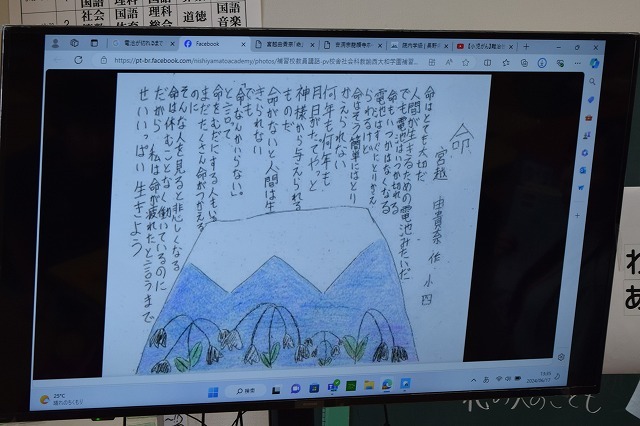 国語
理科
国語
社会
国語
理科
道徳
国語
体育
総合
音楽
電池が切れるまで
Facebook
宮越由貴奈「命」
院内学級 | 長野
【小児がん】難治で
https://pt-br.facebook.com/nishiyamatoacademy/photos/補習校教員講話-pv校舎社会科教諭西大和学園補習
命
宮越 由貴奈 作 小四
命はとても大切だ
人間が生きるための電池みたいだ
でも電池はいつか切れる
命もいつかはなくなる
電池はすぐにとりかえ
られるけど
命はそう簡単にはとり
かえられない
何年も何年も
月日がたってやっと
神様から与えられる
ものだ
命がないと人間は生
きられない
でも
「命なんかいらない。」
と言って
命をむだにする人もいる
まだたくさん命がつかえる
のに
そんな人を見ると悲しくなる
命は休むことなく働いているのに
だから 私は命が疲れたと言うまで
せいいっぱい生きよう
25°C
晴れのちくもり
検索
あ
2024/06/17
わ
あ